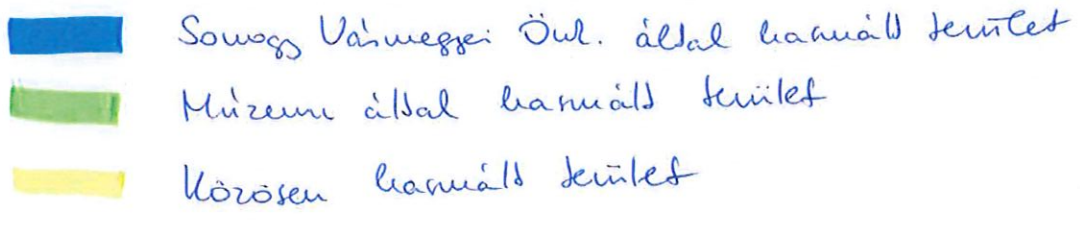 Somogy Vármegyei Önk. által használt terület
Múzeum által használt terület
Közösen használt terület